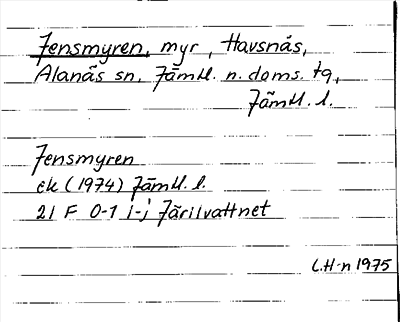 Jensmyren, myr, Havsnäs,
Alanäs sn. Jämtl. n. doms. tg,
Jämtl. l.
Jensmyren
ek (1974) Jämtl. l.
21 F 0-1 i-j Järilvattnet
C.H-n 1975